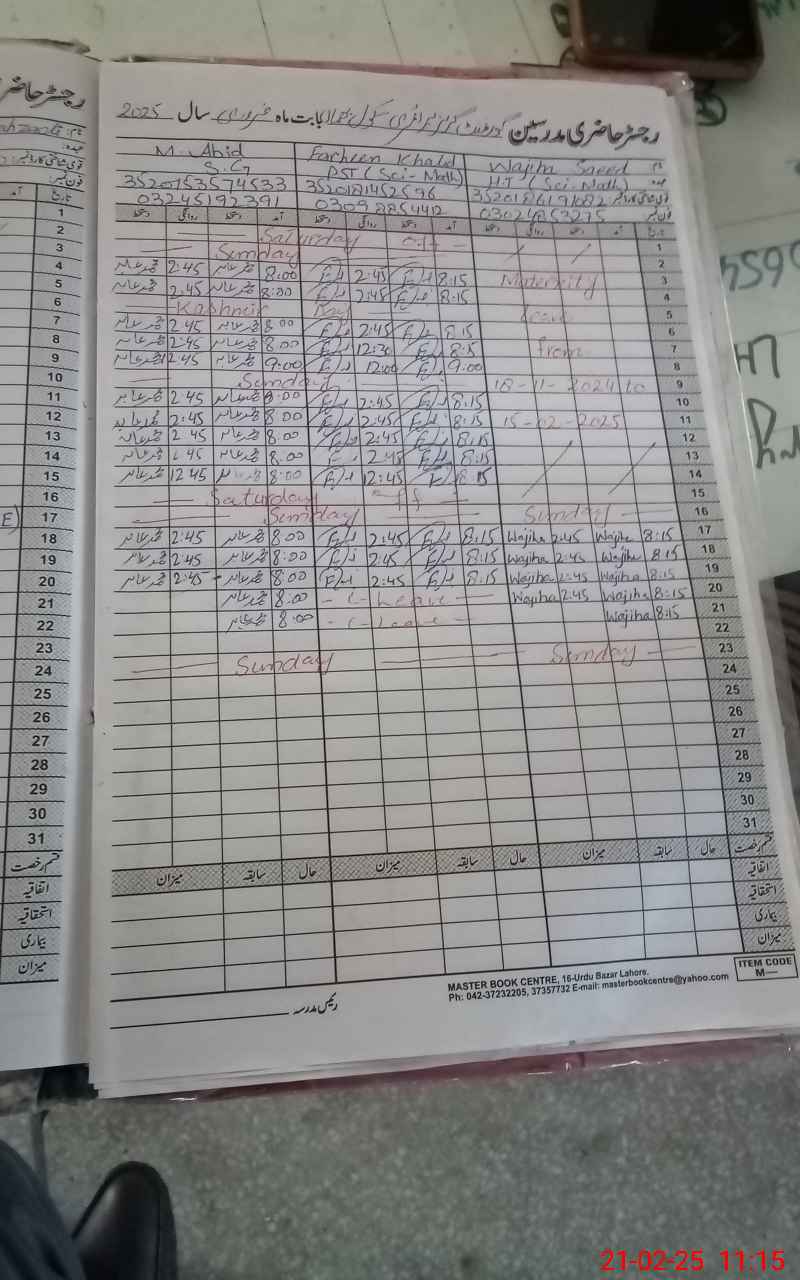 رجسٹر حاضری مدرسین گورنمنٹ گرلز پرائمری سکول بابت ماہ فروری سال 2025
نام Wajiha Saeed Farheen Khalid M. Abid
عہدہ HT (Sci-Math) PST (Sci-Math) S.G
قومی شناختی کارڈ نمبر 3520186191682 3520181452596 3520153574533
فون نمبر 03024853275 03098854412 03245192391
تاریخ آمد دستخط روانگی دستخط آمد دستخط روانگی دستخط آمد دستخط روانگی دستخط
1 Saturday off
2 Sunday
3 Maternity 8:15 2:45 8:00 محمد عابد 2:45 محمد عابد
4 8:15 2:45 8:00 محمد عابد 2:45 محمد عابد
5 leave Kashmir Day
6 8:15 2:45 8:00 محمد عابد 2:45 محمد عابد
7 from 8:15 12:30 8:00 محمد عابد 2:45 محمد عابد
8 9:00 12:00 9:00 محمد عابد 2:45 محمد عابد
9 18-11-2024 to Sunday
10 8:15 2:45 8:00 محمد عابد 2:45 محمد عابد
11 15-02-2025 8:15 2:45 8:00 محمد عابد 2:45 محمد عابد
12 8:15 2:45 8:00 محمد عابد 2:45 محمد عابد
13 8:15 2:45 8:00 محمد عابد 2:45 محمد عابد
14 8:15 12:45 8:00 محمد عابد 12:45 محمد عابد
15 Saturday off
16 Sunday Sunday
17 8:15 Wajiha 2:45 Wajiha 8:15 2:45 8:00 محمد عابد 2:45 محمد عابد
18 8:15 Wajiha 2:45 Wajiha 8:15 2:45 8:00 محمد عابد 2:45 محمد عابد
19 8:15 Wajiha 2:45 Wajiha 8:15 2:45 8:00 محمد عابد 2:45 محمد عابد
20 8:15 Wajiha 2:45 Wajiha - C-Leave - 8:00 محمد عابد
21 8:15 Wajiha - C-Leave - 8:00 محمد عابد
22
23 Sunday Sunday
24
25
26
27
28
29
30
31
قسم رخصت حال سابقہ میزان حال سابقہ میزان حال سابقہ میزان
اتفاقیہ
استحقاقیہ
بیماری
میزان
ITEM CODE
M—
MASTER BOOK CENTRE, 16-Urdu Bazar Lahore.
Ph: 042-37232205, 37357732 E-mail: masterbookcentre@yahoo.com
رئیس مدرسہ
رجسٹر حاضری
نام:
عہدہ:
قومی شناختی کارڈ نمبر:
فون نمبر:
تاریخ آمد
1
2
3
4
5
6
7
8
9
10
11
12
13
14
15
16
17
18
19
20
21
22
23
24
25
26
27
28
29
30
31
قسم رخصت
اتفاقیہ
استحقاقیہ
بیماری
میزان
21-02-25 11:15